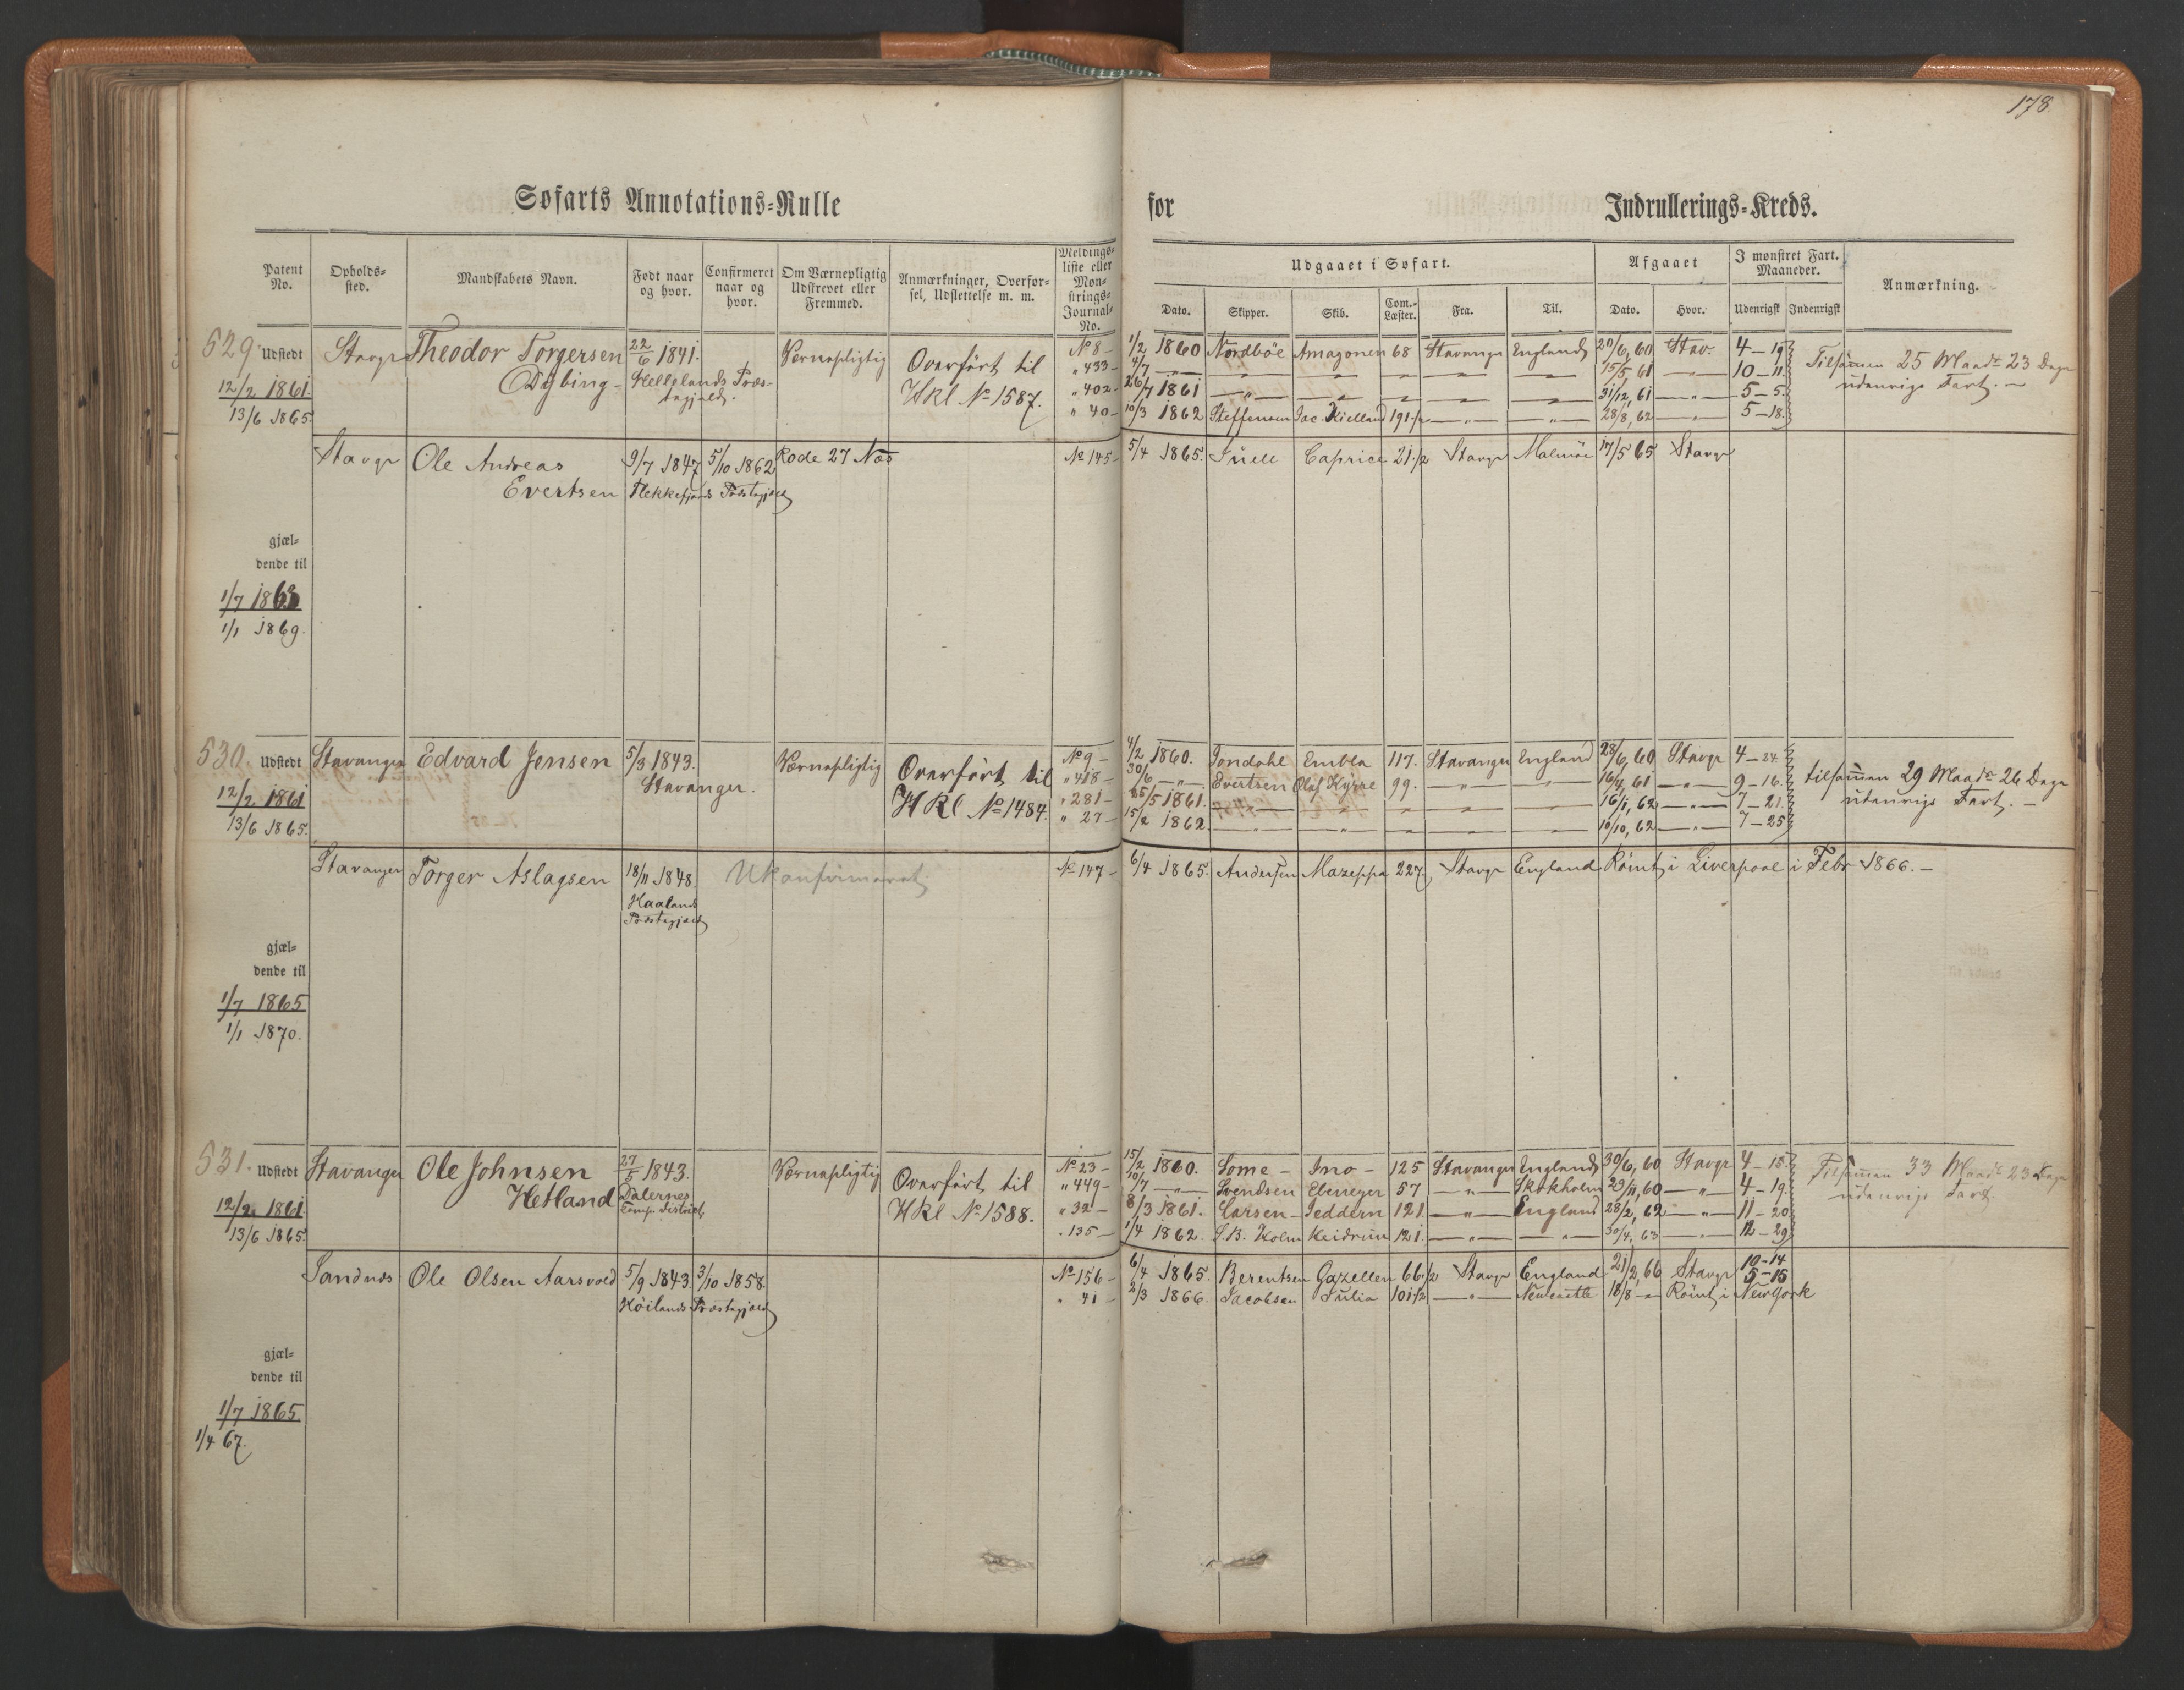 178
Søfarts Annotations=Rulle for Indrullerings=Kreds.
Patent No.
Opholds=sted.
Mandskabets Navn.
Født naar og hvor.
Confirmeret naar og hvor.
Om Værnepligtig Udskrevet eller Fremmed.
Anmærkninger, Overfør=sel, Udslettelse m. m.
Meldings=liste eller Mon=strings=Journal=No.
Udgaaet i Søfart.
Dato.
Skipper.
Skib.
Com.=Læster.
Fra.
Til.
Afgaaet
Dato.
Hvor.
I mønstret Fart. Maaneder.
Udenrigsk
Indenrigsk
Anmærkning.
529 Udstedt Stavgr Theodor Torgersen 22/6 1841. Værnepligtig Overført til No 8 1/2 1860 Nordböe Amazonen 68 Stavanger England 20/6, 60 Stav. 4–19 Tilsammen 25 Maadr 23 Dage
12/2 1861. Dybing Hellelands Præs- HRl No 1587. " 433 4/7 — " — 15/5 61 — " — 10–11 udenrigs Fart. —
13/6 1865. tegjeld. " 402 26/7 1861 — " — 31/12, 61 — " — 5–5.
" 40 10/3 1862 Steffensen Jac. Kielland 191 1/2 — " — 28/8, 62 — " — 5–18.
Stavgr Ole Andreas 9/7 1847 5/10 1862 Rode 27 Næs No 145 5/4 1865. Juell Caprice 21 1/2 Stavgr Malmöe 17/5 65 Stavgr
Evertsen Flekkefjords Præstegjeld
gjæl=
dende til
1/7 1863
1/1 1869.
530. Udstedt Stavanger Edvard Jensen 5/3 1843. Værnepligtig Overført til No 9 4/2 1860. Tondahl Embla 117. Stavanger England 28/6, 60 Stavgr 4–24 tilsammen 29 Maadr 26 Dage
12/2 1861 Stavanger. HRl No 1484. " 418 30/6 — " — Evertsen Olaf Kyrre 99. — " — 16/4, 61 — " — 9–16. udenrigs Fart. —
13/6 1865. " 281 25/5 1861. — " — 16/1, 62 — " — 7–21.
" 27 15/2 1862. — " — 10/10, 62 — " — 7–25
Stavanger Torger Aslagsen 18/11 1848. Ukonfirmeret No 147 6/4 1865. Andersen Mazeppa 227. Stavgr England Römt i Liverpool i Febr 1866. —
Haalands
Præstegjeld
gjæl=
dende til
1/7 1865
1/1 1870.
531. Udstedt Stavanger Ole Johnsen 27/5 1843. Værnepligtig Overført til No 23 15/2 1860. Lome Ino 125 Stavanger England 30/6, 60 Stavgr 4–15. Tilsammen 33 Maadr 23 Dage
12/2 1861. Hetland Dalernes HRl No 1588. " 449 10/7 — " — Svendsen Ebenezer 57 — " — Stokholm 29/11, 60 — " — 4–19. udenrigs Fart.
13/6 1865. Comp. District " 32 8/3 1861. Larsen Jeddern 121 — " — England 28/2, 62 — " — 11–20
" 135 1/4 1862. S. B. Holm Heidrun 121. — " — 30/4, 63 — " — 12–29
Sandnæs Ole Olsen Aarsvold 5/9 1843. 3/10 1858. No 156 6/4 1865. Berentsen Gazellen 66 1/2 Stavgr England 21/2, 66 Stavgr 10–14
5–15
Höilands Præstegjeld " 41 2/3 1866. Jacobsen Julia 101 1/2 — " — Newcastle 18/8 — " Römt i New York
gjæl=
dende til
1/7 1865
1/4 67.